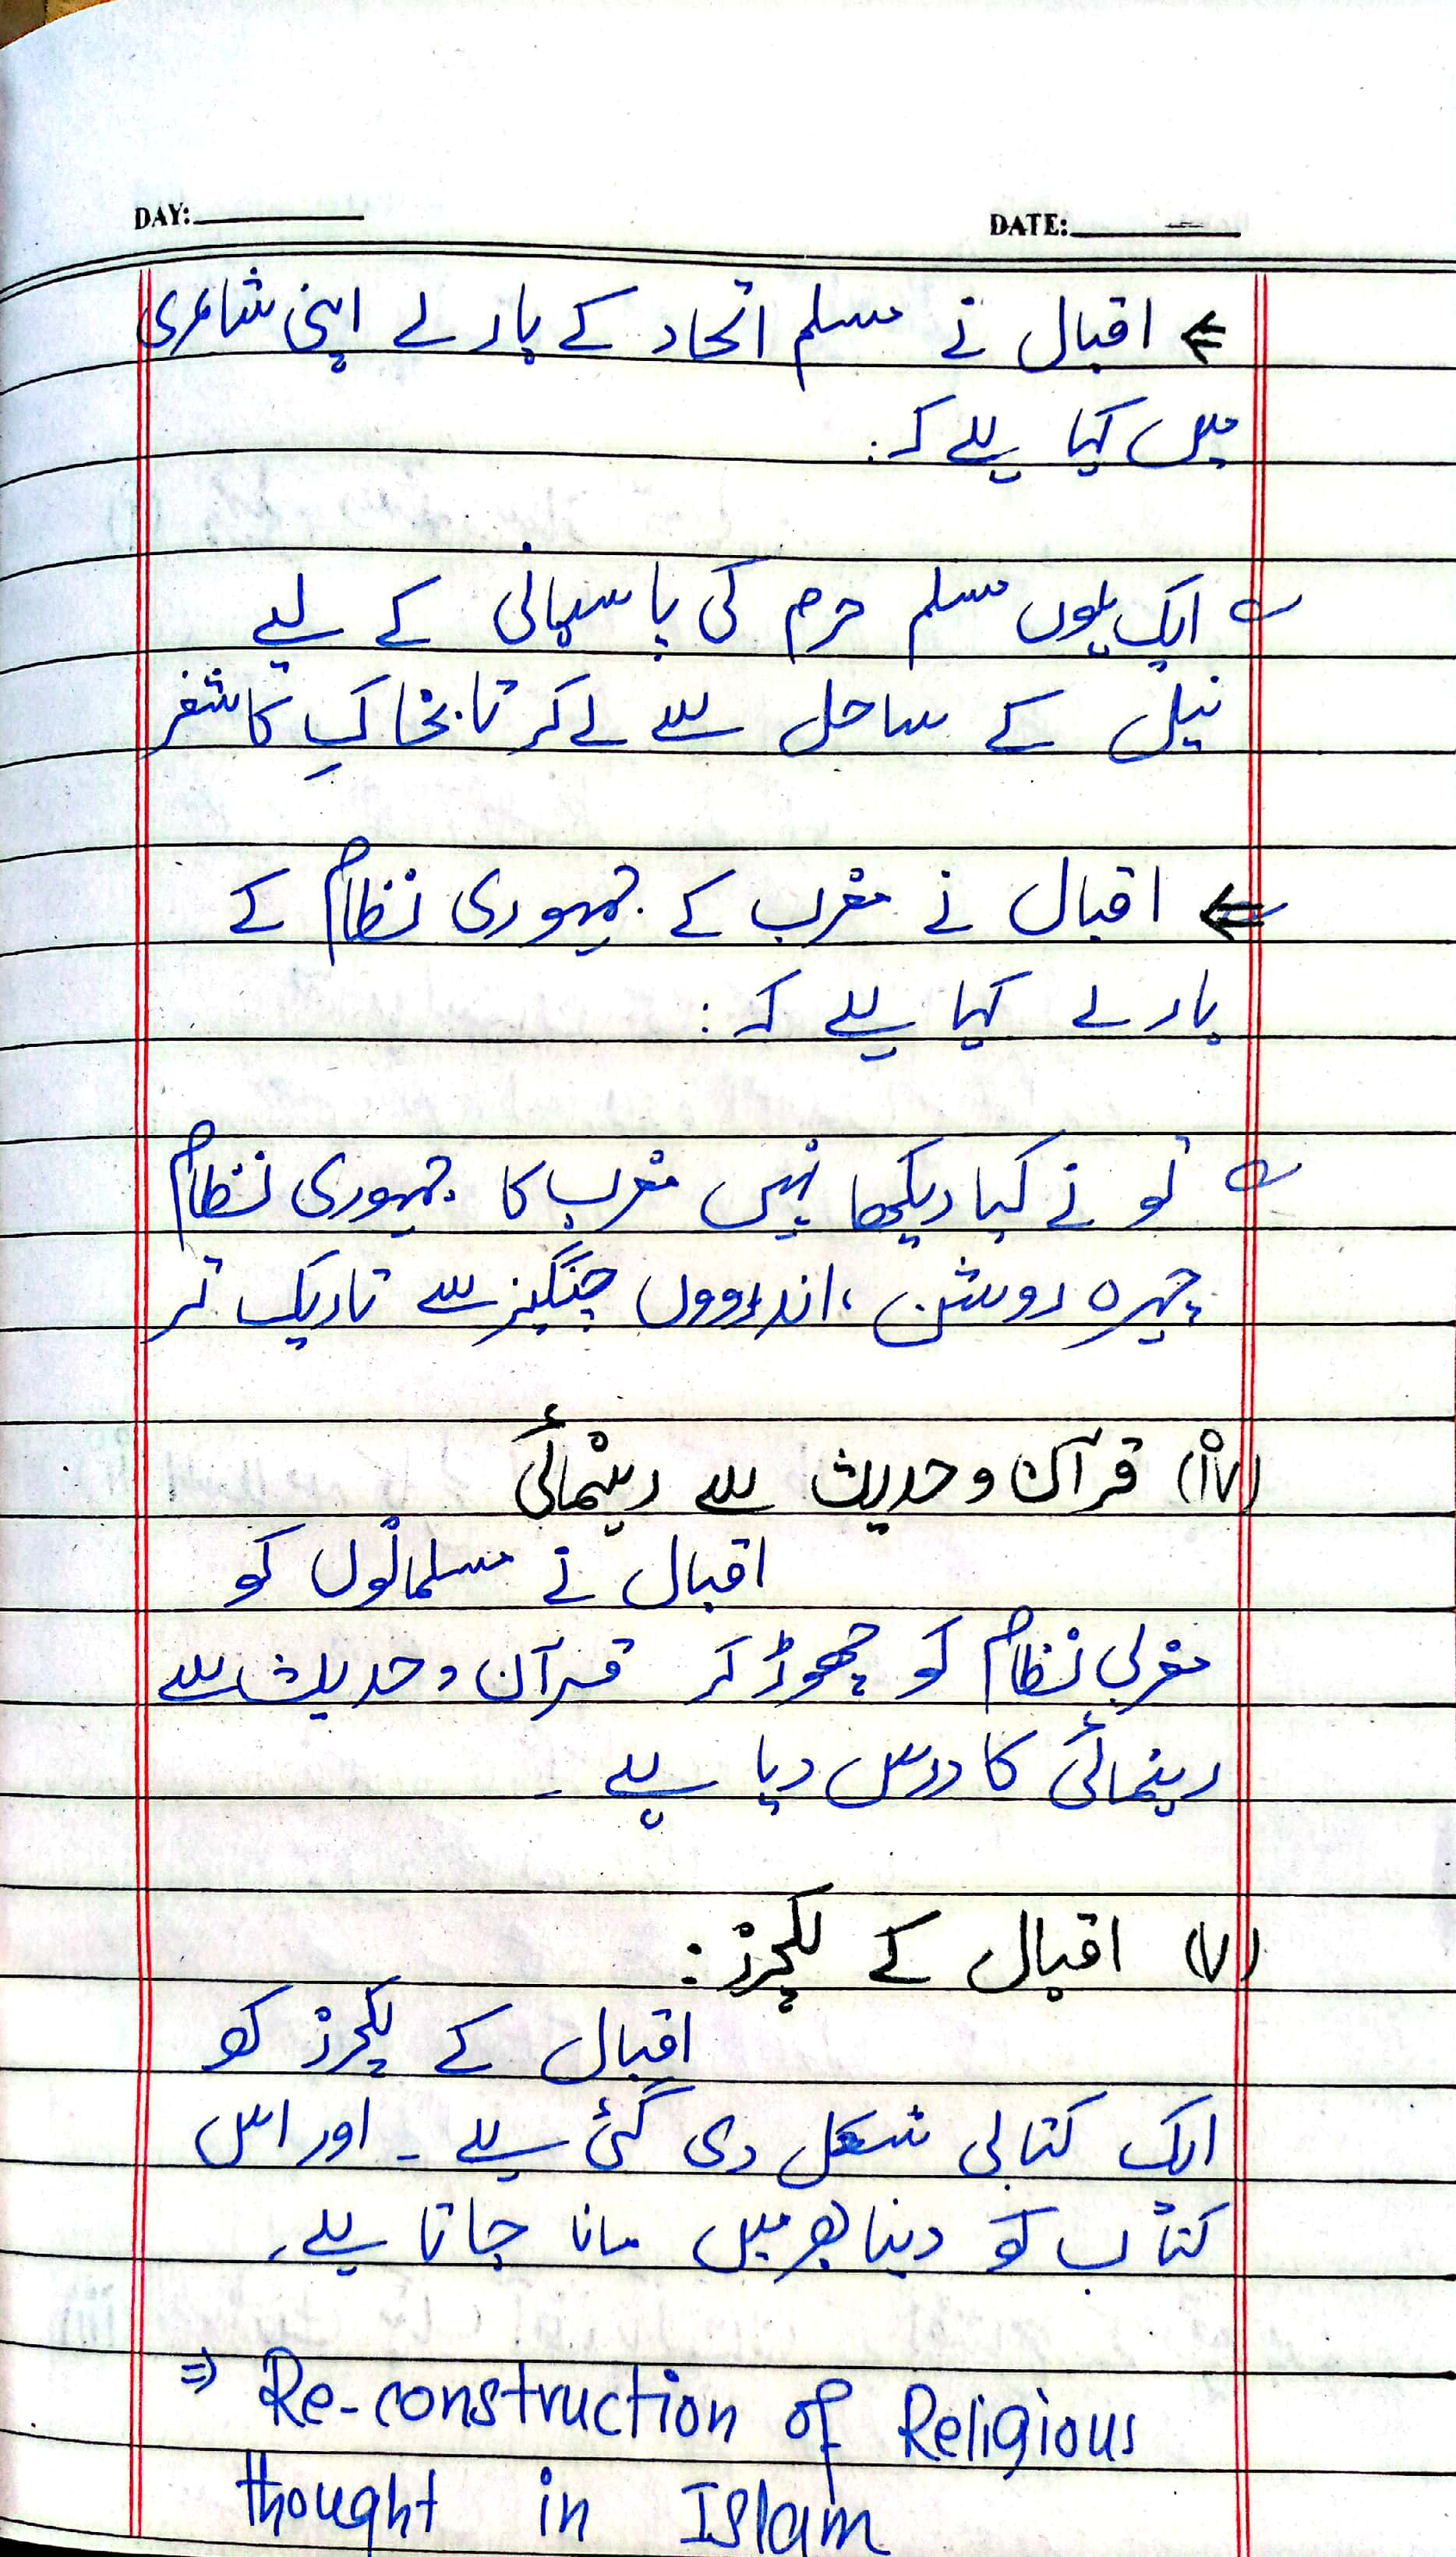 DAY:
DATE:
⇐ اقبال نے مسلم اتحاد کے بارے اپنی شاعری
میں کہا ہے کہ:
؎ ایک ہوں مسلم حرم کی پاسبانی کے لیے
نیل کے ساحل سے لے کر تابخاکِ کاشغر
⇐ اقبال نے مغرب کے جمہوری نظام کے
بارے کہا ہے کہ:
؎ تو نے کیا دیکھا نہیں مغرب کا جمہوری نظام
چہرہ روشن، اندروں چنگیز سے تاریک تر
(iv) قرآن و حدیث سے رہنمائی
اقبال نے مسلمانوں کو
مغربی نظام کو چھوڑ کر قرآن و حدیث سے
رہنمائی کا درس دیا ہے ۔
(v) اقبال کے لیکچرز:
اقبال کے لیکچرز کو
ایک کتابی شکل دی گئی ہے ۔ اور اس
کتاب کو دنیا بھر میں مانا جاتا ہے۔
⇒ Re-construction of Religious
thought in Islam